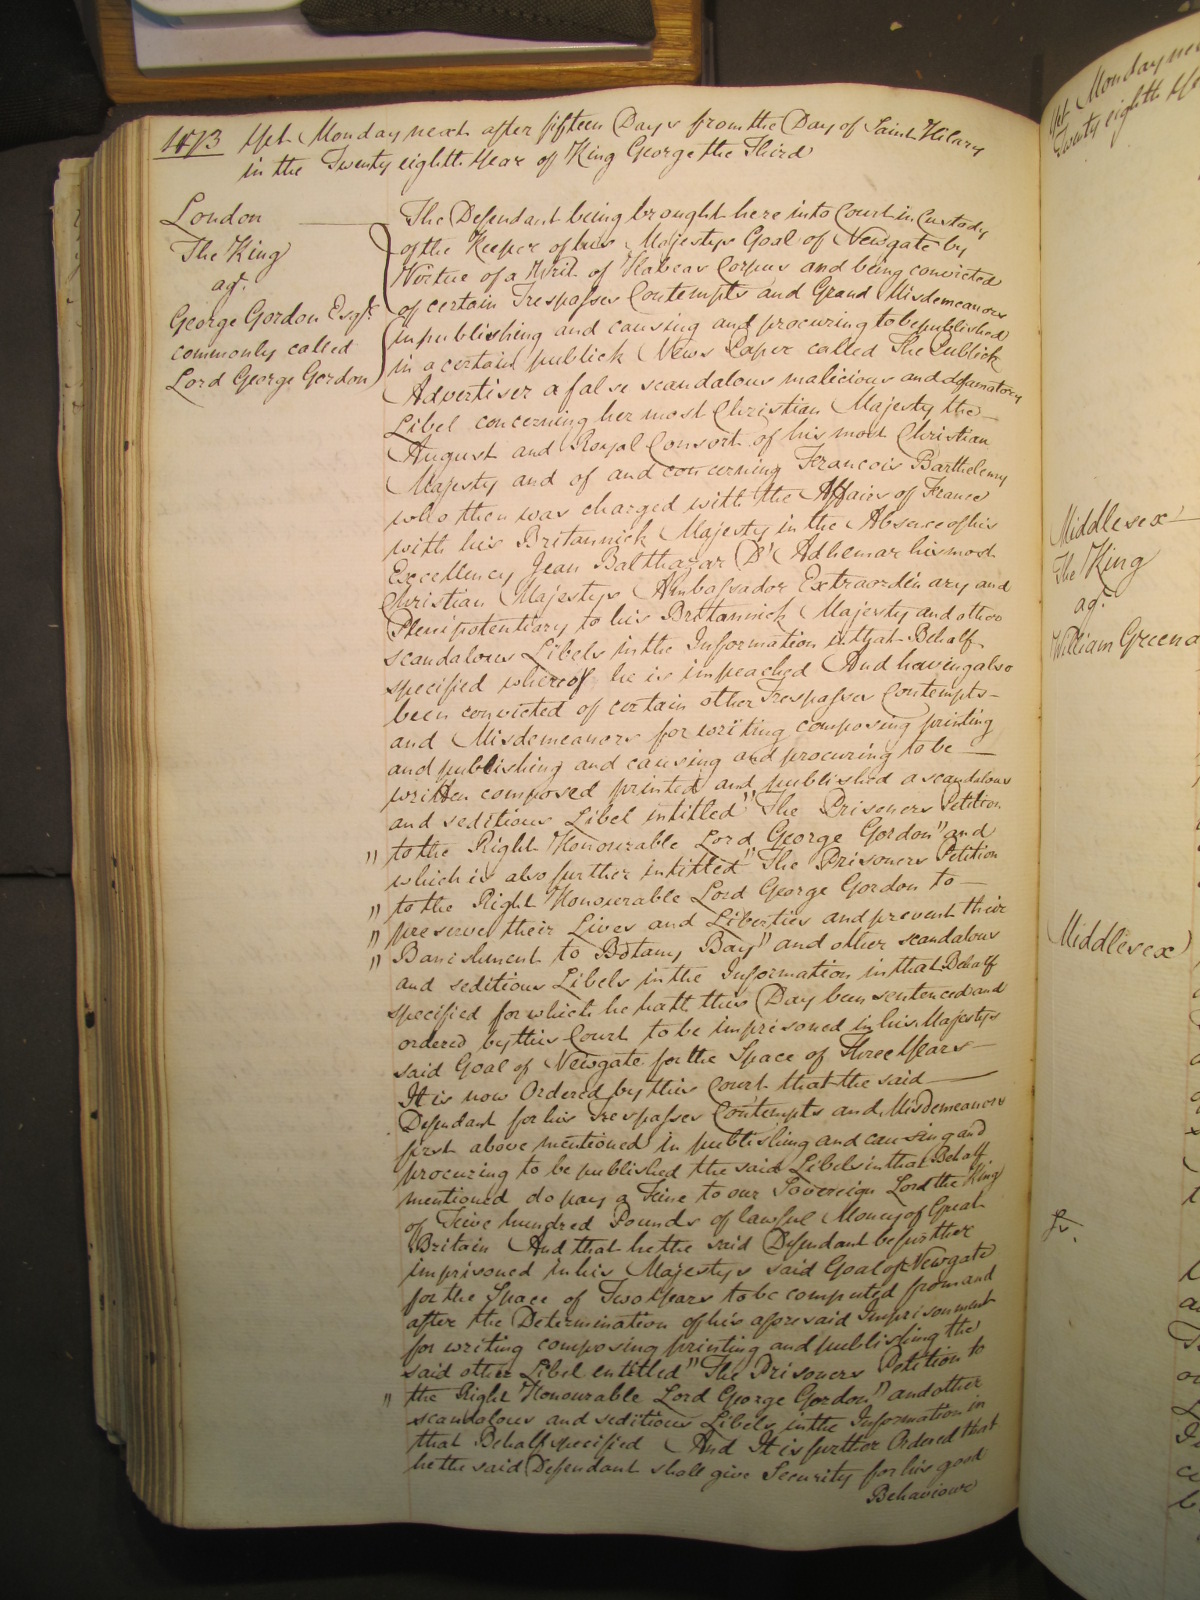 1473 Yet Monday next after fifteen Days from the Day of Saint Hilary
in the Twenty eighth Year of King George the Third
London
The King
agt.
George Gordon Esqr.
commonly called
Lord George Gordon
The Defendant being brought here into Court in Custody
of the Keeper of his Majestys Goal of Newgate by
Virtue of a Writ of Habeas Corpus and being convicted
of certain Trespasses Contempts and Grand Misdemeanors
in publishing and causing and procuring to be published
in a certain publick News Paper called The Publick
Advertiser a false scandalous malicious and defamatory
Libel concerning her most Christian Majesty the
August and Royal Consort of his most Christian
Majesty and of and concerning Francois Barthelemy
who then was charged with the Affairs of France
with his Britannick Majesty in the Absence of his
Excellency Jean Balthazar D'Adhemar his most
Christian Majestys Ambassador Extraordinary and
Plenipotentiary to his Britannick Majesty and other
scandalous Libels in the Information in that Behalf
specified whereof he is impeached And having also
been convicted of certain other Trespasses Contempts
and Misdemeanors for writing composing printing
and publishing and causing and procuring to be
written composed printed and published a scandalous
and seditious Libel intitled "The Prisoners Petition
" to the Right Honourable Lord George Gordon" and
which is also further intitled "The Prisoners Petition
" to the Right Honourable Lord George Gordon to
" preserve their Lives and Liberties and prevent their
" Banishment to Botany Bay" and other scandalous
and seditious Libels in the Information in that Behalf
specified for which he hath this Day been sentenced and
ordered by this Court to be imprisoned in his Majestys
said Goal of Newgate for the Space of Three Years
It is now Ordered by this Court that the said
Defendant for his Trespasses Contempts and Misdemeanors
first above mentioned in publishing and causing and
procuring to be published the said Libels in that Behalf
mentioned do pay a Fine to our Sovereign Lord the King
of Five hundred Pounds of lawful Money of Great
Britain And that he the said Defendant be further
imprisoned in his Majestys said Goal of Newgate
for the Space of Two Years to be computed from and
after the Determination of his aforesaid Imprisonment
for writing composing printing and publishing the
said other Libel entitled "The Prisoners Petition to
" the Right Honourable Lord George Gordon" and other
scandalous and seditious Libels in the Information in
that Behalf specified And It is further Ordered that
he the said Defendant shall give Security for his good
Behaviour
Yet Monday
Twenty eighth
Middlesex
The King
agt.
William Green
Middlesex